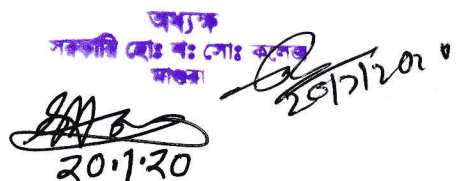 অধ্যক্ষ
সরকারি হোঃ শঃ সোঃ কলেজ
মাগুরা
20/1/2020
20.1.20